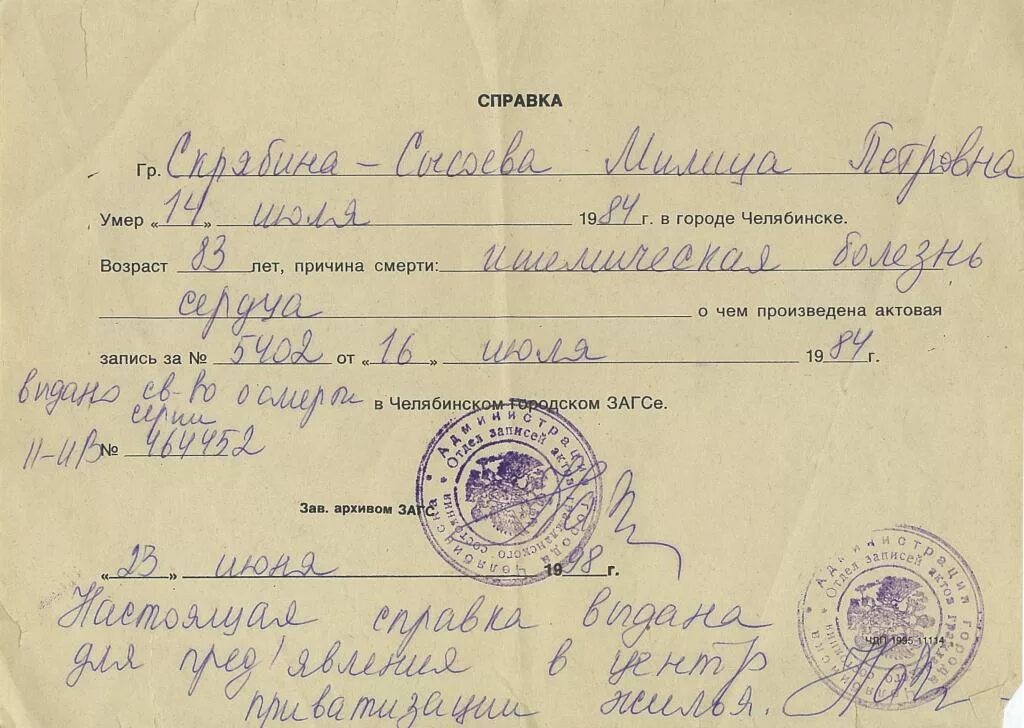 СПРАВКА
Гр. Скрябина – Сысоева Милица Петровна
Умер «14» июля 1984 г. в городе Челябинске.
Возраст 83 лет, причина смерти: ишемическая болезнь
сердца о чем произведена актовая
запись за № 5402 от «16» июля 1984 г.
выдано св-во о смерти в Челябинском городском ЗАГСе.
серии
II-ИВ № 464452
Администрация города Челябинска
Отдел записей актов гражданского состояния
Зав. архивом ЗАГС
«23» июня 1998 г.
Настоящая справка выдана
для пред'явления в центр
приватизации жилья.
Администрация города Челябинска
Отдел записей актов
ЧДП 1995 11114